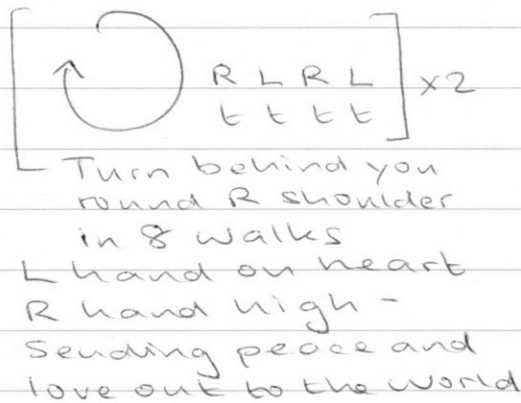 R L R L
t t t t
x2
Turn behind you
round R shoulder
in 8 walks
L hand on heart
R hand high -
Sending peace and
love out to the world